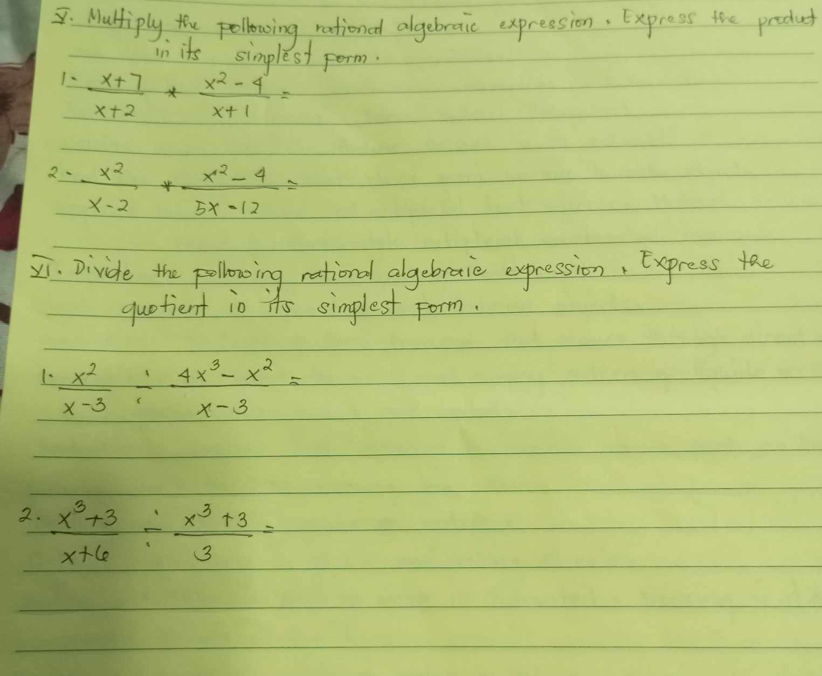 V. Multiply the following rational algebraic expression. Express the product
in its simplest form.
1. x+7/x+2 * x²-4/x+1 =
2. x²/x-2 * x²-4/5x-12 =
VI. Divide the following rational algebraic expression. Express the
quotient in its simplest form.
1. x²/x-3 ÷ 4x³-x²/x-3 =
2. x³+3/x+6 ÷ x³+3/3 =